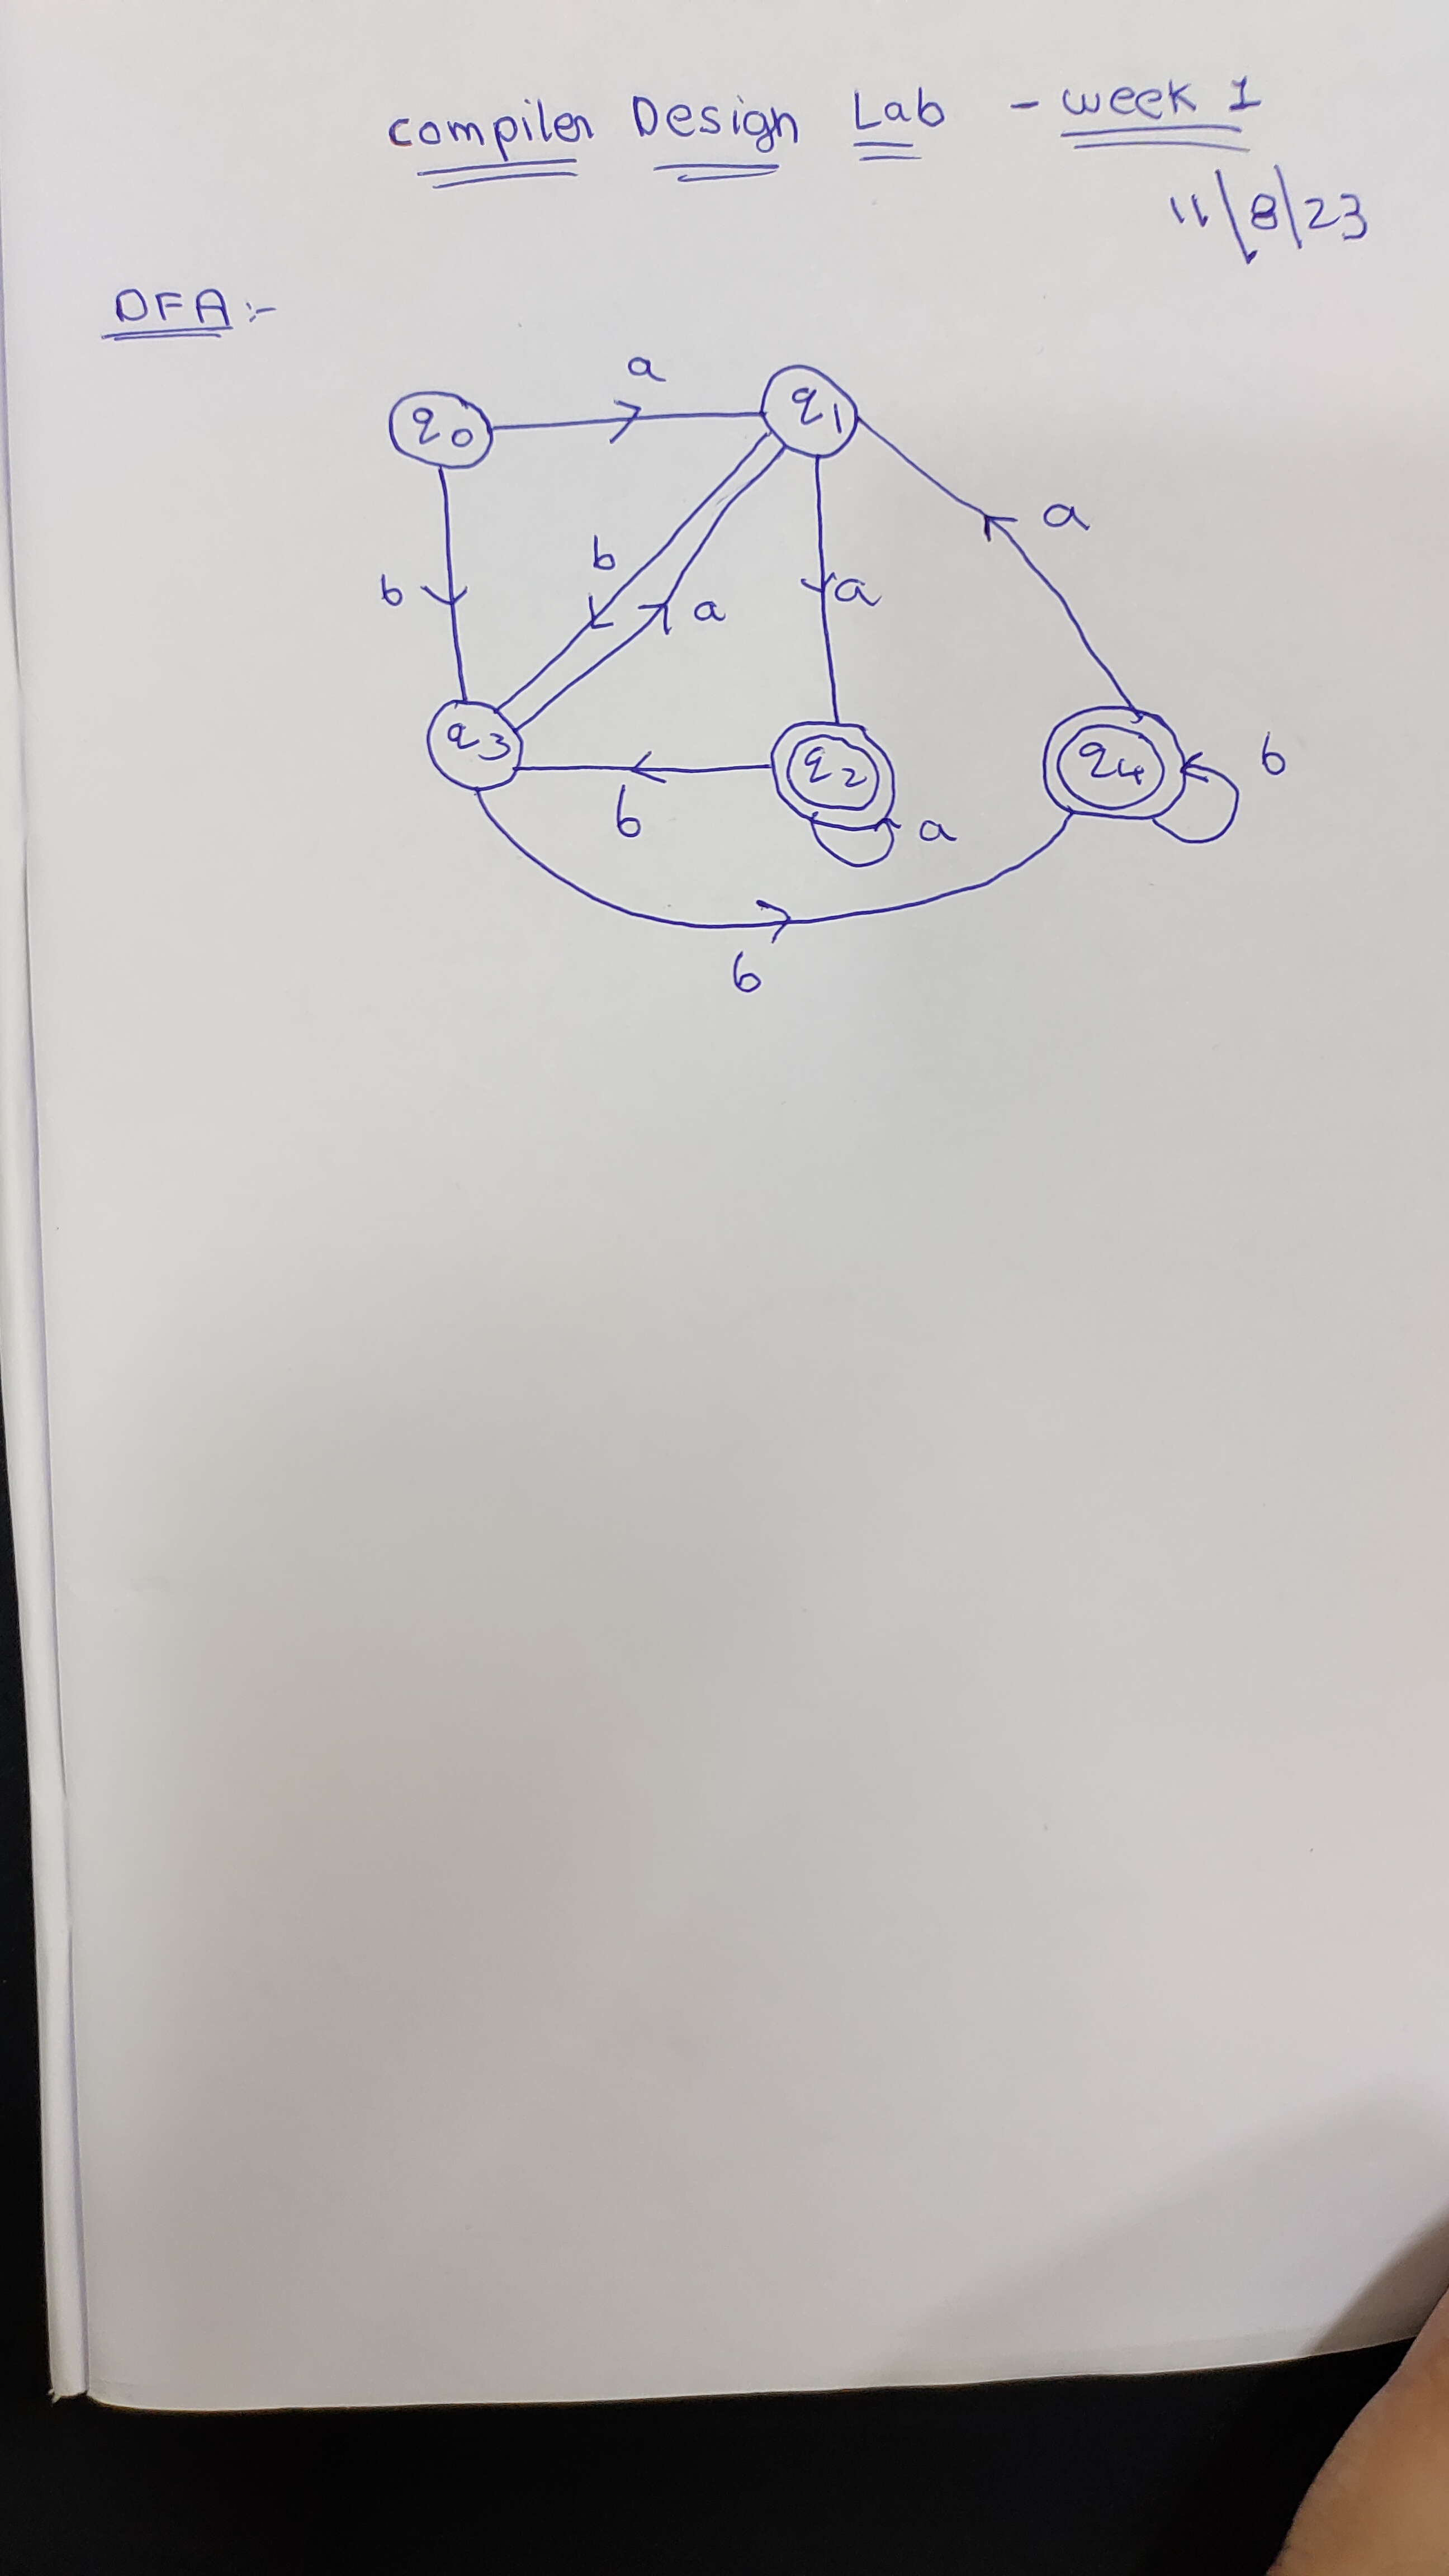 compiler Design Lab - week 1
11/8/23
DFA :-
a
q0 q1
a
b b a a
q3 q2 q4 b
b a
b